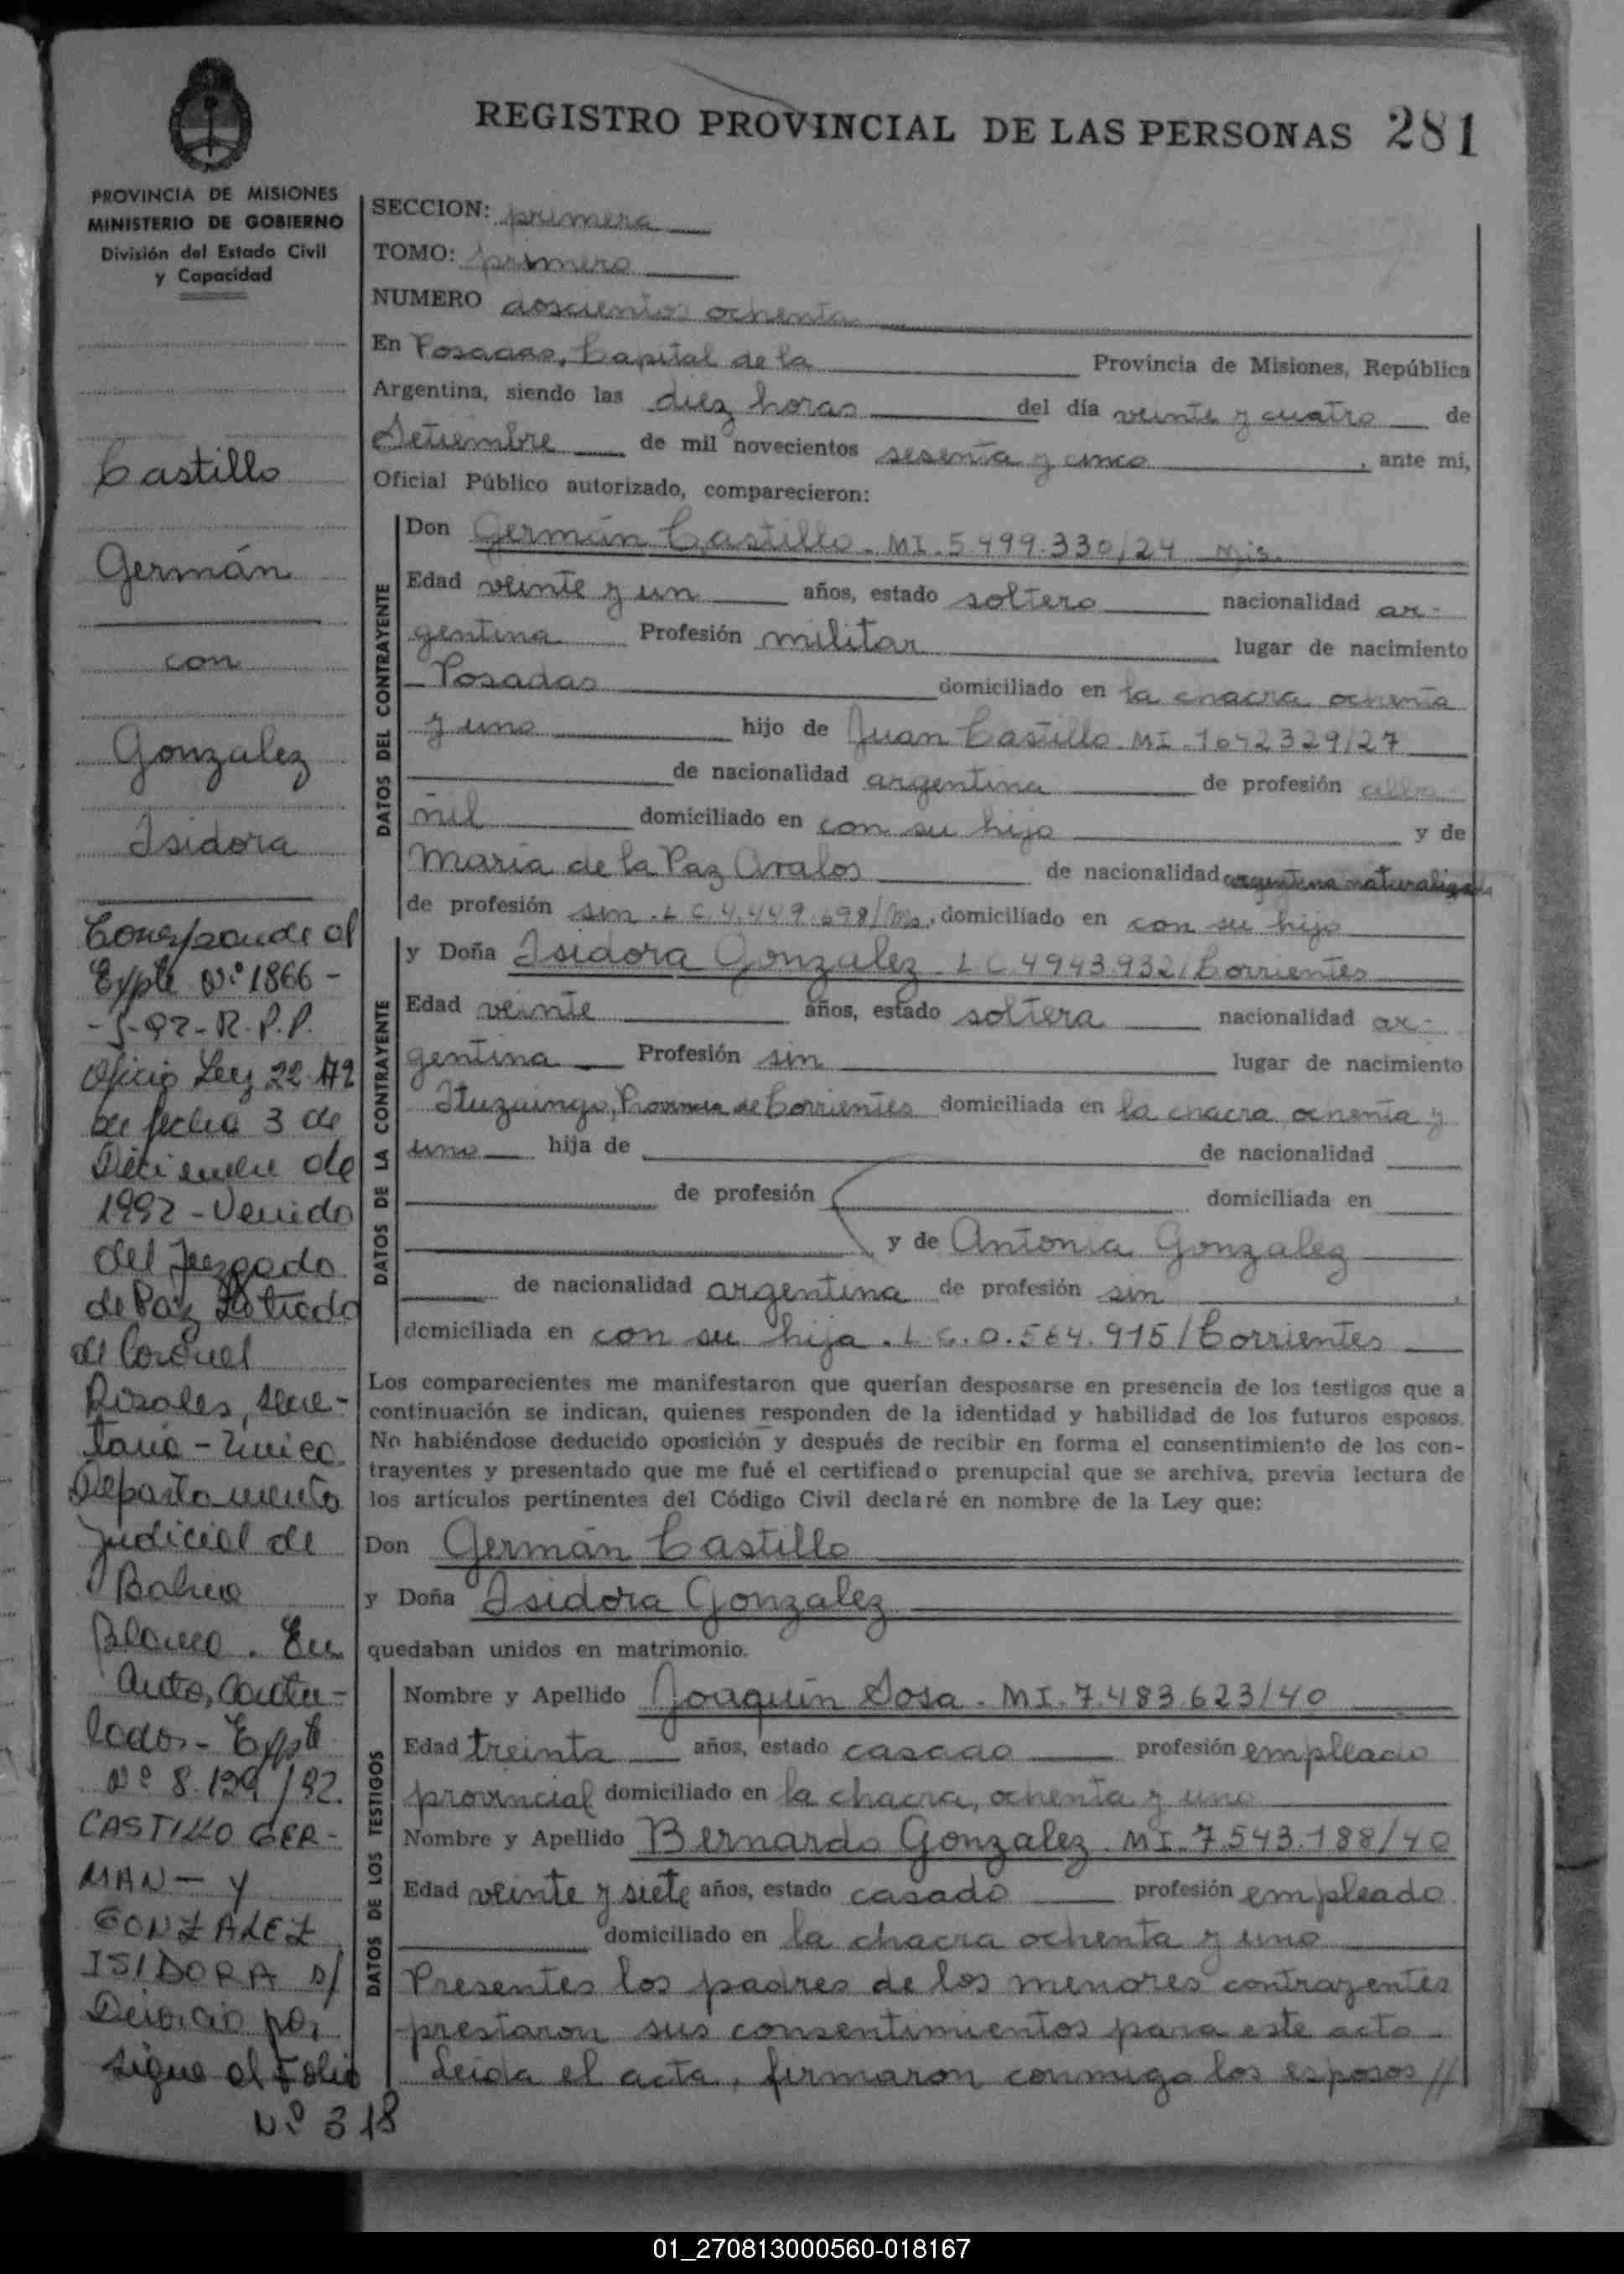 REGISTRO PROVINCIAL DE LAS PERSONAS 281
PROVINCIA DE MISIONES
MINISTERIO DE GOBIERNO
División del Estado Civil
y Capacidad
Castillo
Germán
con
Gonzalez
Isidora
Corresponde al
Expte Nº 1866 -
R.P.P.
Oficio Ley 22.172
de fecha 3 de
Diciembre de
1992 - Venido
del Juzgado
de Paz Letrado
de Coronel
Rosales, Secre-
taria - Unica
Departamento
Judicial de
Bahia
Blanca. En
Auto, Caratu-
lados - Expte
Nº 8.129/92.
CASTILLO GER-
MAN - y
GONZALEZ
ISIDORA S/
Divorcio por
sigue al Folio
Nº 318
SECCION: primera
TOMO: primero
NUMERO doscientos ochenta
En Posadas, Capital de la Provincia de Misiones, República
Argentina, siendo las diez horas del día veinte y cuatro de
Setiembre de mil novecientos sesenta y cinco, ante mi,
Oficial Público autorizado, comparecieron:
DATOS DEL CONTRAYENTE
Don Germán Castillo - MI. 5499.330/24 Mis.
Edad veinte y un años, estado soltero nacionalidad ar-
gentina Profesión militar lugar de nacimiento
Posadas domiciliado en la chacra ochenta
y uno hijo de Juan Castillo - MI. 1642329/27
de nacionalidad argentina de profesión alba-
ñil domiciliado en con su hijo y de
María de la Paz Avalos de nacionalidad argentina naturalizada
de profesión sin. L.C. 4.449.698/Ms, domiciliado en con su hijo
DATOS DE LA CONTRAYENTE
y Doña Isidora Gonzalez - L C. 4943.932/Corrientes
Edad veinte años, estado soltera nacionalidad ar-
gentina Profesión sin lugar de nacimiento
Ituzaingo, Provincia de Corrientes domiciliada en la chacra ochenta y
uno hija de de nacionalidad
de profesión domiciliada en
y de Antonia Gonzalez
de nacionalidad argentina de profesión sin
domiciliada en con su hija. L.C. 0.564.915/Corrientes
Los comparecientes me manifestaron que querían desposarse en presencia de los testigos que a
continuación se indican, quienes responden de la identidad y habilidad de los futuros esposos.
No habiéndose deducido oposición y después de recibir en forma el consentimiento de los con-
trayentes y presentado que me fué el certificado prenupcial que se archiva, previa lectura de
los artículos pertinentes del Código Civil declaré en nombre de la Ley que:
Don Germán Castillo
y Doña Isidora Gonzalez
quedaban unidos en matrimonio.
DATOS DE LOS TESTIGOS
Nombre y Apellido Joaquín Sosa - MI. 7.483.623/40
Edad treinta años, estado casado profesión empleado
provincial domiciliado en la chacra, ochenta y uno
Nombre y Apellido Bernardo Gonzalez - MI. 7.543.188/40
Edad veinte y siete años, estado casado profesión empleado
domiciliado en la chacra ochenta y uno
Presentes los padres de los menores contrayentes
prestaron sus consentimientos para este acto.
Leída el acta, firmaron conmigo los esposos //
01_270813000560-018167